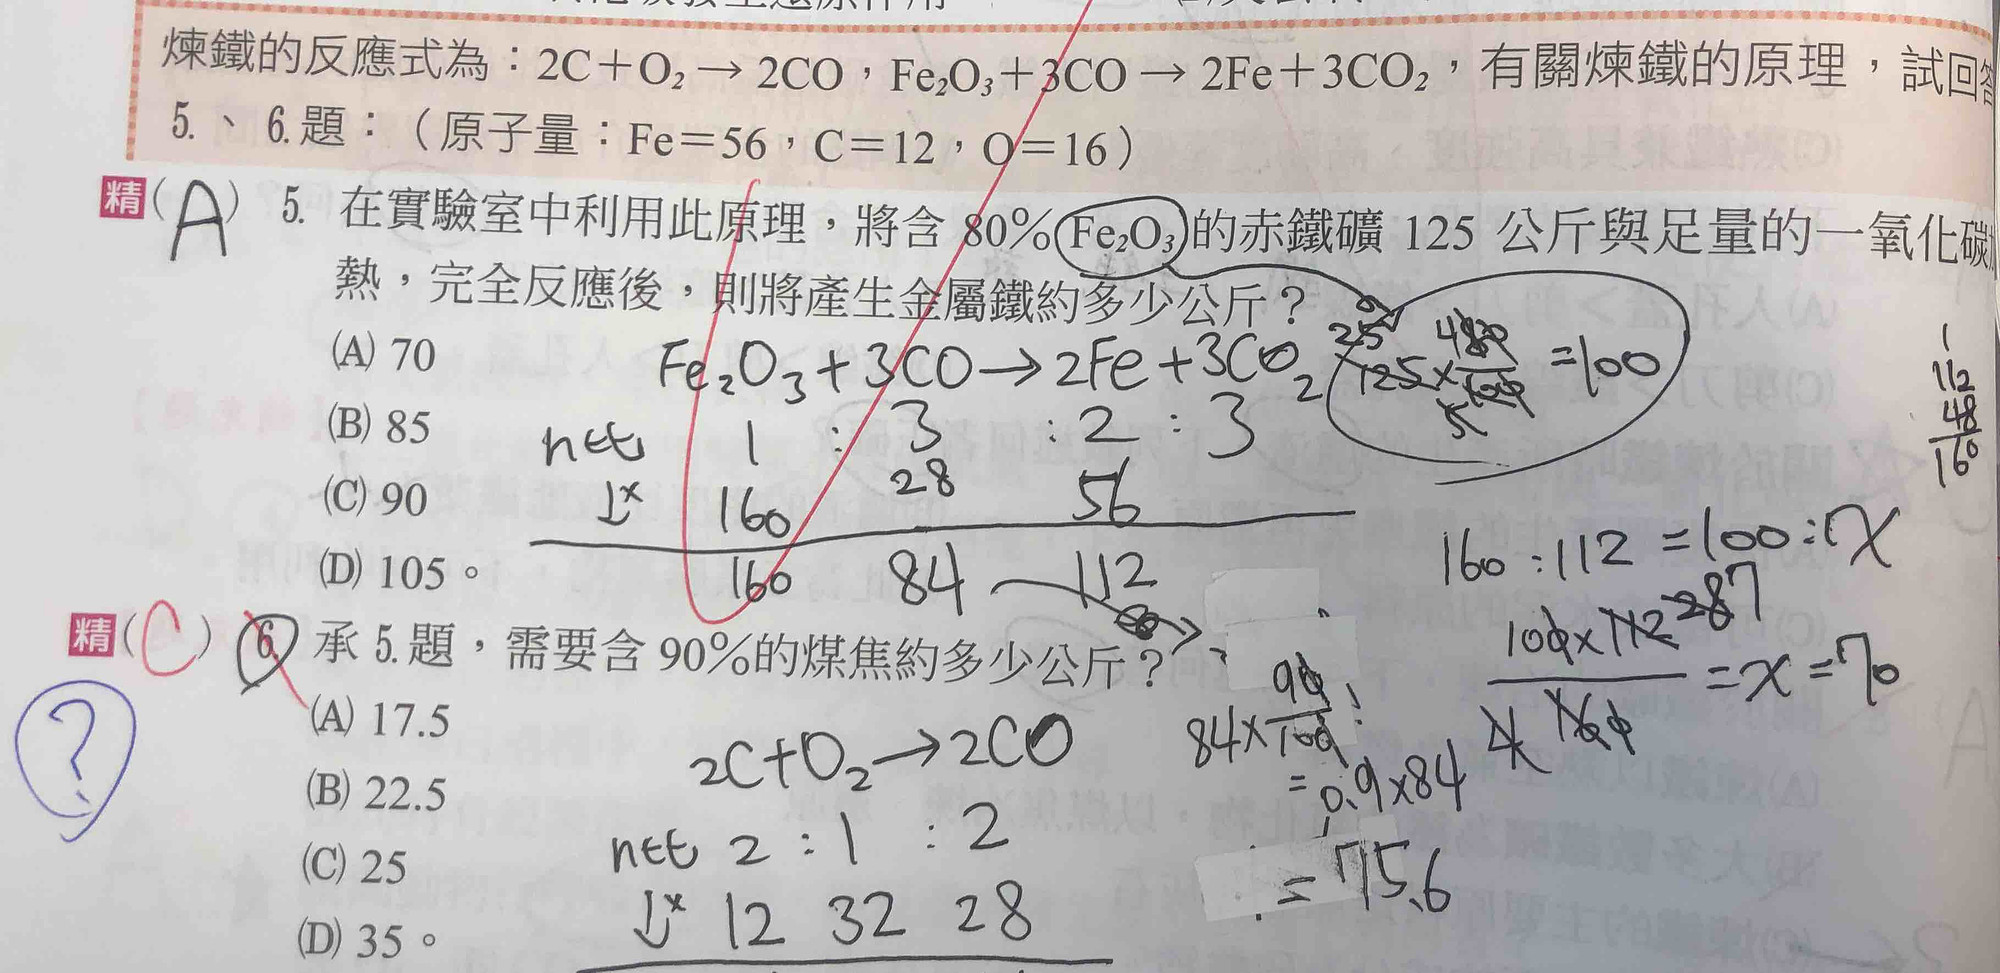 煉鐵的反應式為：2C＋O₂→2CO，Fe₂O₃＋3CO→2Fe＋3CO₂，有關煉鐵的原理，試回答
5.、6.題：（原子量：Fe＝56，C＝12，O＝16）
精(A) 5. 在實驗室中利用此原理，將含 80% Fe₂O₃ 的赤鐵礦 125 公斤與足量的一氧化碳
熱，完全反應後，則將產生金屬鐵約多少公斤？
(A) 70
(B) 85
(C) 90
(D) 105。
Fe₂O₃+3CO→2Fe+3CO₂
1 : 3 : 2 : 3
↓× 160 28 56
160 84 112
=100
112
48
160
160:112=100:x
=x=70
精(C) 6. 承 5.題，需要含 90%的煤焦約多少公斤？
(A) 17.5
(B) 22.5
(C) 25
(D) 35。
?
2C+O₂→2CO
2 : 1 : 2
↓× 12 32 28
84×90/100
=0.9×84
=75.6